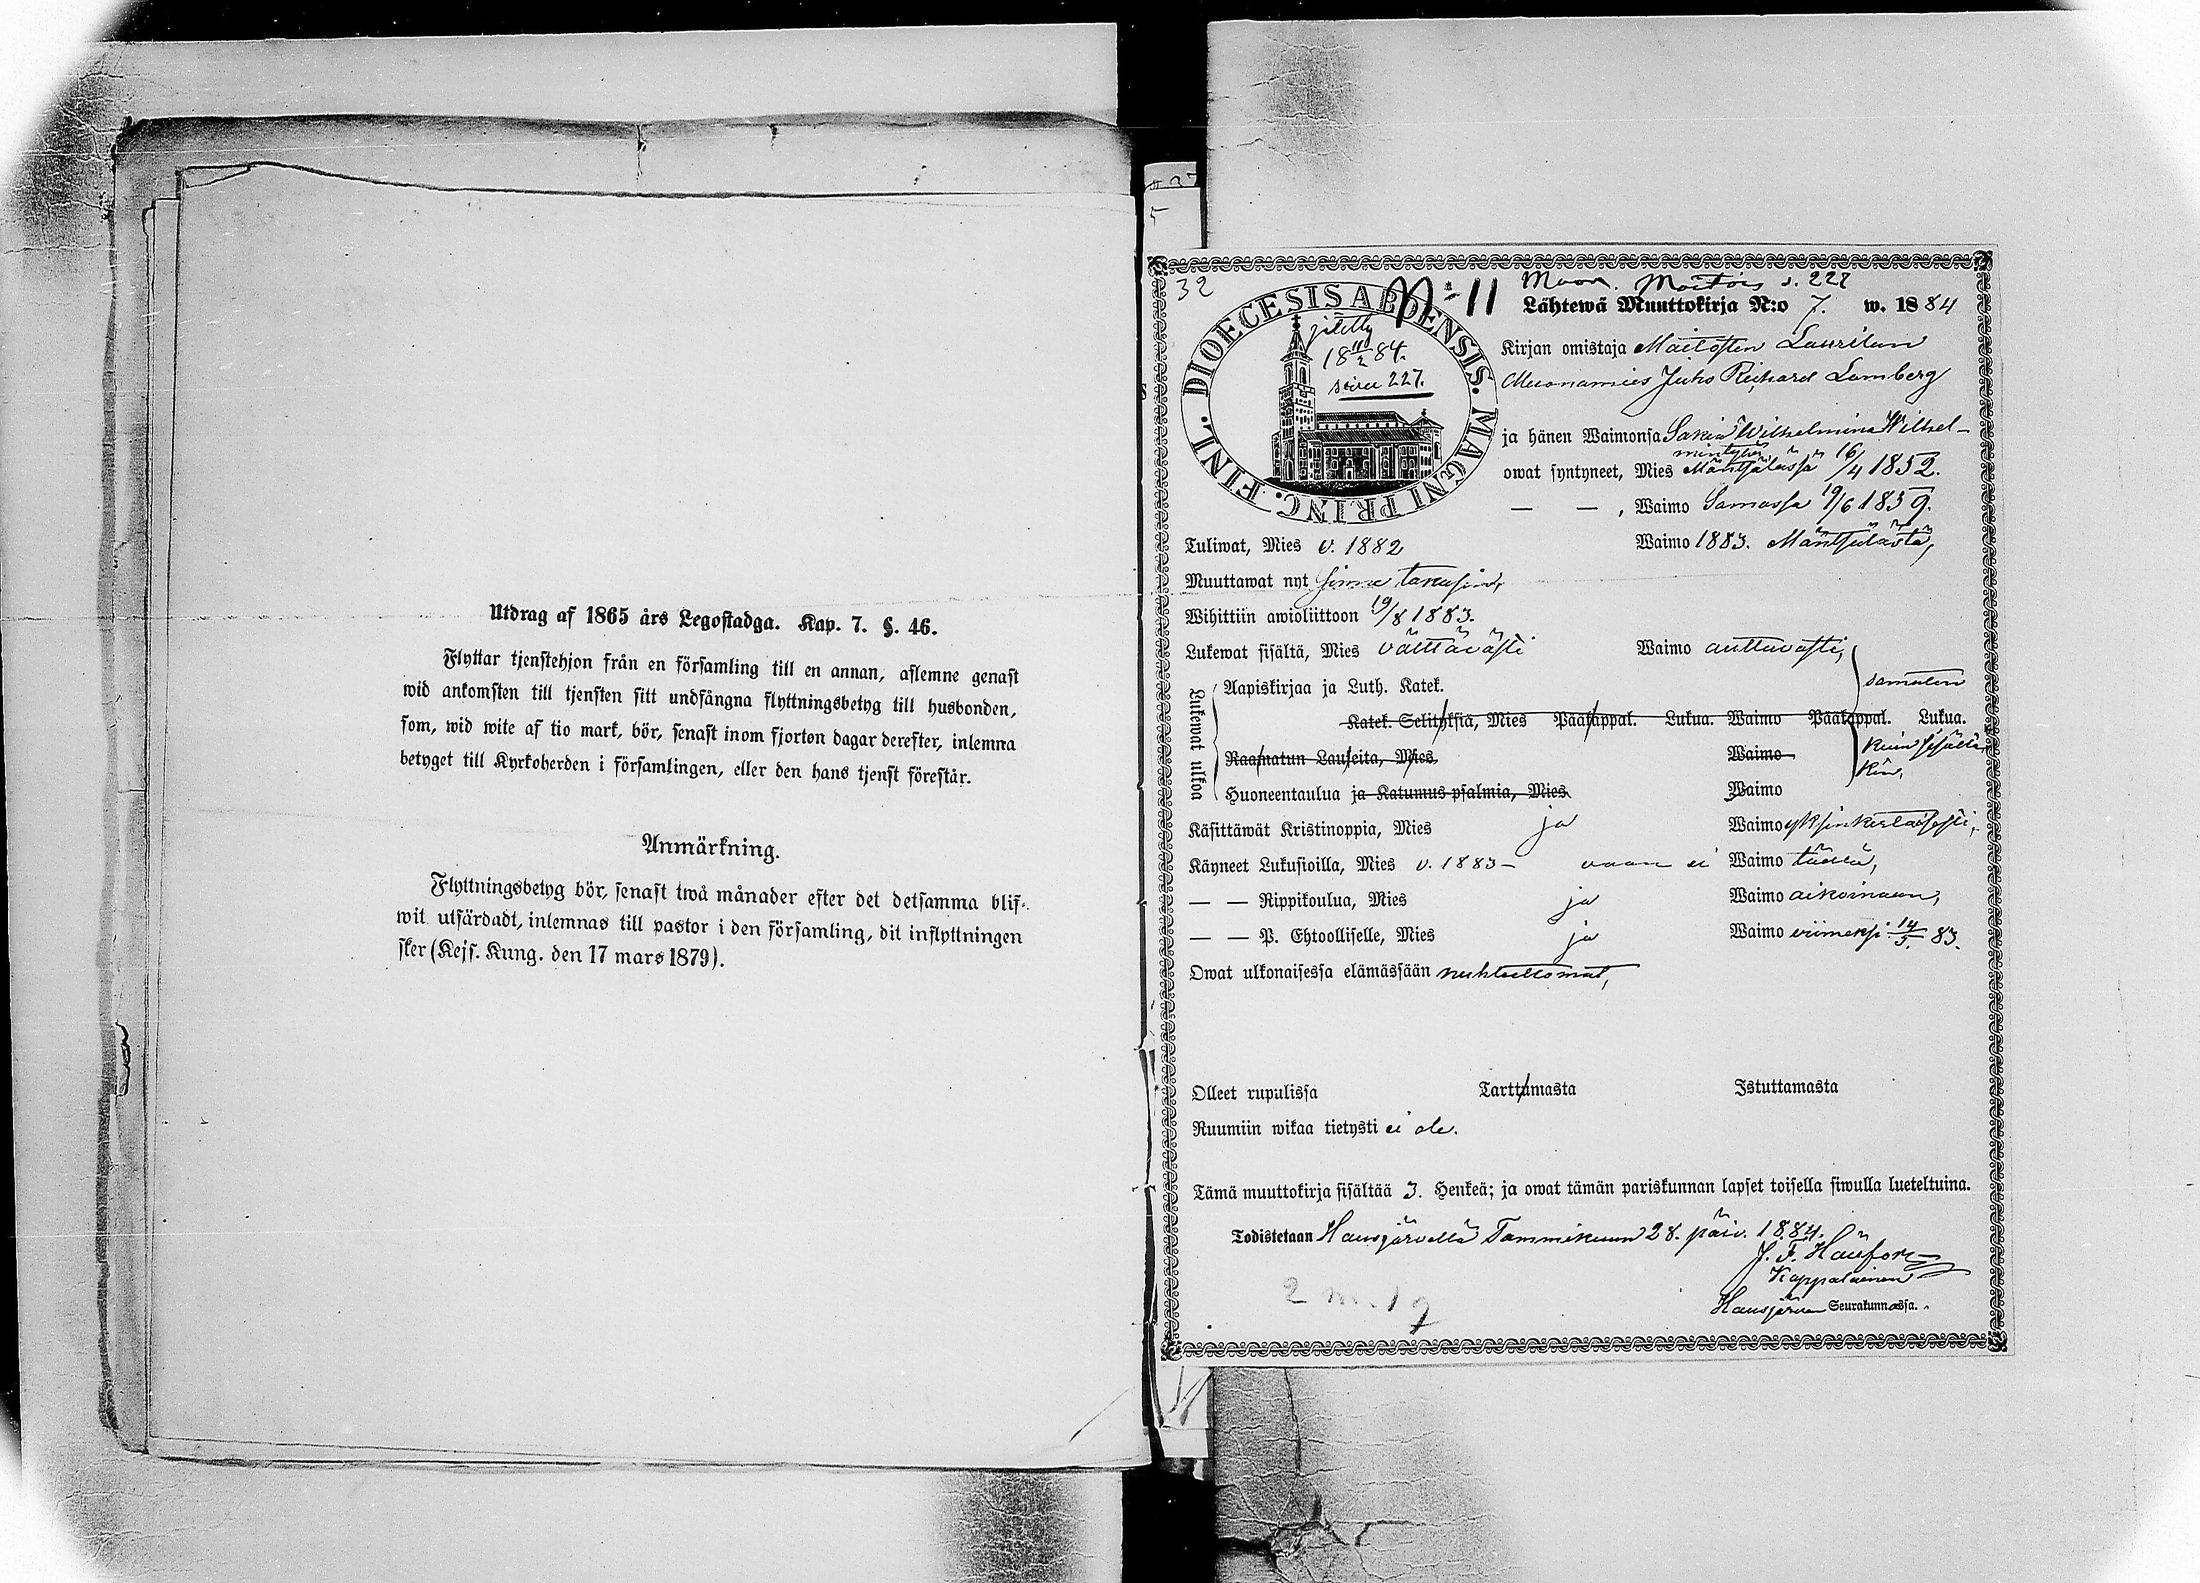 Utdrag af 1865 års Legostadga. Kap. 7. §. 46.
Flyttar tjenstehjon från en församling till en annan, aflemne genast
wid ankomsten till tjensten sitt undfångna flyttningsbetyg till husbonden,
som, wid wite af tio mark, bör, senast inom fjorton dagar derefter, inlemna
betyget till Kyrkoherden i församlingen, eller den hans tjenst förestår.
Anmärkning.
Flyttningsbetyg bör, senast twå månader efter det detsamma blif-
wit utfärdadt, inlemnas till pastor i den församling, dit inflyttningen
sker (Kejs. Kung. den 17 mars 1879).
32
N:11
s. 228
DIOECESIS ABOENSIS. MAGNI PRINC. FINL.
18 11/2 84.
sivu 227.
Lähtewä Muuttokirja N:o 7. w. 1884
Kirjan omistaja Maitoisten Laurilan
Muonamies Juho Richard Lamberg
ja hänen Waimonsa Wilhelmina Wilhel-
mintytär
owat syntyneet, Mies Mäntsälässä 16/4 1852.
— — , Waimo Samassa 19/6 1859.
Tuliwat, Mies v. 1882 Waimo 1883. Mäntsälästä,
Muuttawat nyt sinne takasin,
Wihittiin awioliittoon 19/8 1883.
Lukewat sisältä, Mies välttävästi Waimo auttavasti,
Lukewat ulkoa
Aapiskirjaa ja Luth. Katek.
samaten
Katek. Selityksiä, Mies Pääkappal. Lukua. Waimo Pääkappal. Lukua.
kuin sisältä-
kin,
Raamatun Lauseita, Mies Waimo
Huoneentaulua ja Katumus-psalmia, Mies Waimo
Käsittäwät Kristinoppia, Mies ja Waimo yksinkertaisesti,
Käyneet Lukusioilla, Mies v. 1883 — vaan ei Waimo täällä,
— — Rippikoulua, Mies ja Waimo aikoinaan,
— — P. Ehtoolliselle, Mies ja Waimo viimeksi 14/5 83.
Owat ulkonaisessa elämässään nuhteettomat,
Olleet rupulissa Tarttumasta Istuttamasta
Ruumiin wikaa tietysti ei ole.
Tämä muuttokirja sisältää 3. Henkeä; ja owat tämän pariskunnan lapset toisella siwulla lueteltuina.
Todistetaan Hausjärvellä Tammikuun 28. päiv. 1884.
J. F.
Kappalainen
Hausjärven Seurakunnassa.